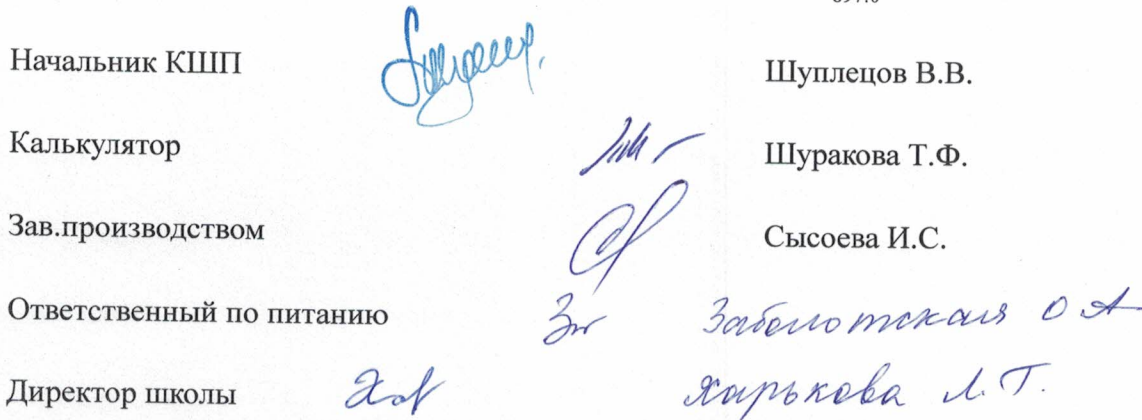 Начальник КШП Шуплецов В.В.
Калькулятор Шуракова Т.Ф.
Зав.производством Сысоева И.С.
Ответственный по питанию Заболотская О А
Директор школы Харькова Л.Т.